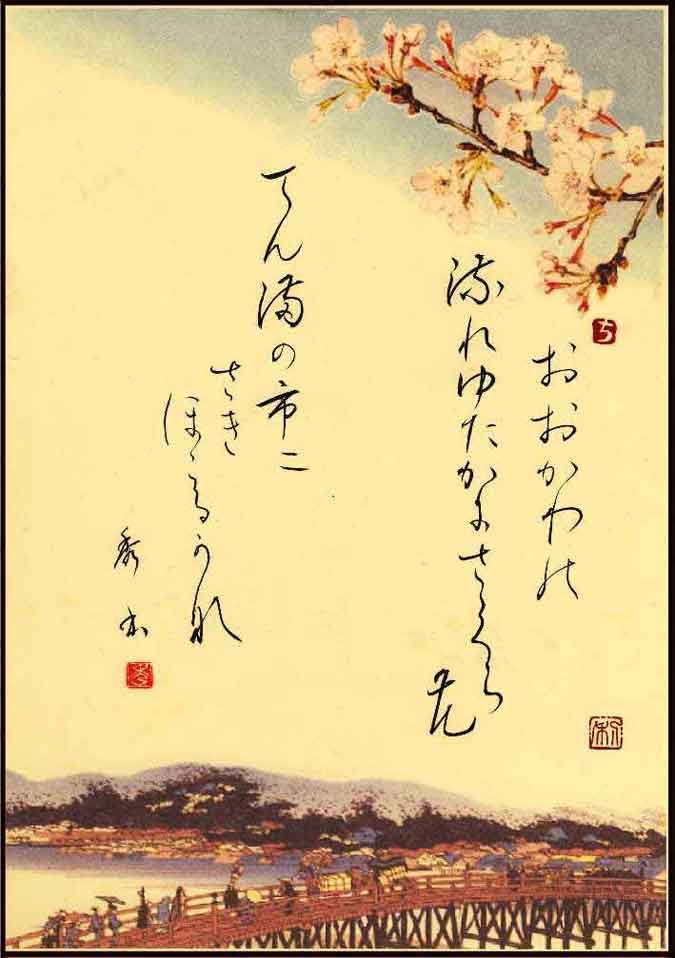 ち
おおかわの
流れゆたかにさくら
花
てん満の市二
さき
ほこるかな
秀